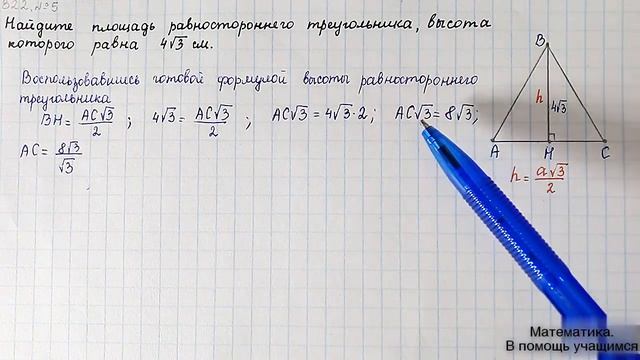 322. №5
Найдите площадь равностороннего треугольника, высота
которого равна 4√3 см.
Воспользовавшись готовой формулой высоты равностороннего
треугольника
BH = AC√3/2 ; 4√3 = AC√3/2 ; AC√3 = 4√3·2 ; AC√3 = 8√3 ;
AC = 8√3/√3
B
h 4√3
A H C
h = a√3/2
Математика.
В помощь учащимся